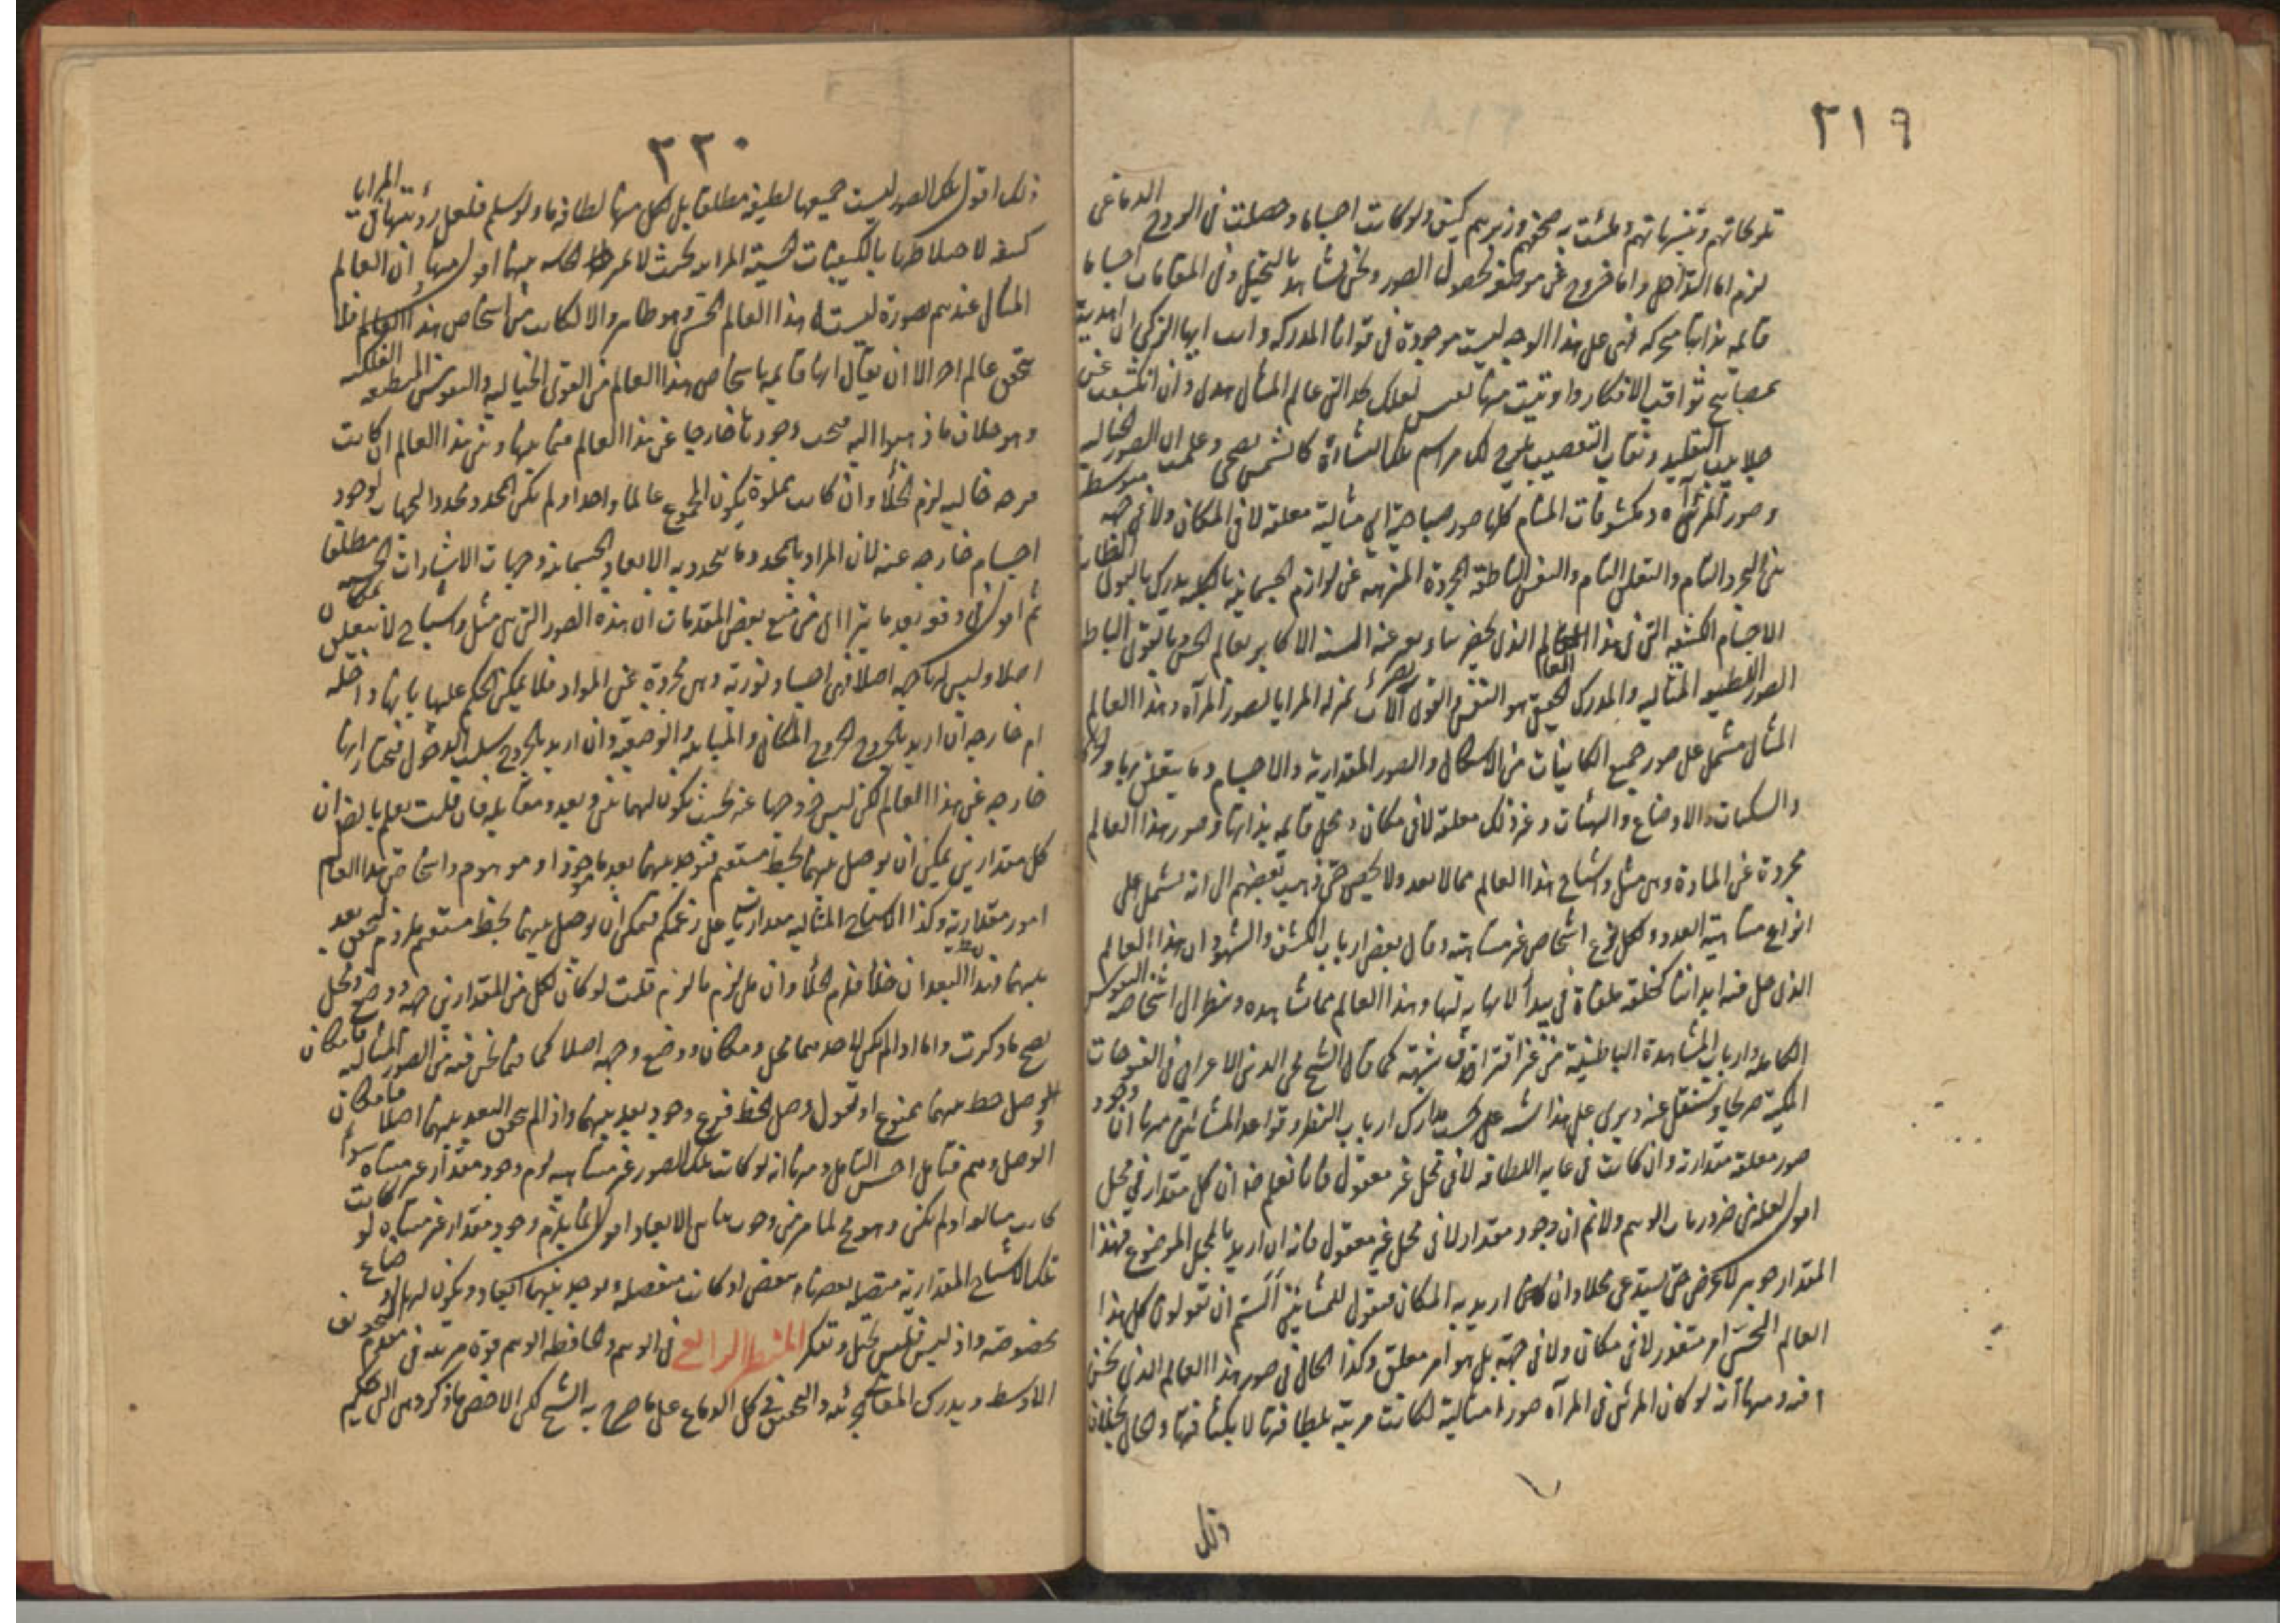 ٣١٩
تلويحاتهم وتنبيهاتهم وملئت به صحفهم وزبرهم كيف ولو كانت اجساما وحصلت فى الروح الدماغى
لزم اما التداخل واما خروج عن موضعه لحصول الصور ونحن نشاهد بالتخيل وفى المنامات اجساما
قائمة بذاتها متحركة فهى على هذا الوجه ليست موجودة فى قوانا المدركة وانت ايها الزكى ان اهديت
بمصابيح ثواقب الافكار واوتيت منها بقبس لعلك تجد الى عالم المثال هدى وان انكشف عن
جلابيب التقليد ونقاب التعصب يلوح لك مراسم تلك النشأة كالشمس الضحى وعلمت ان الصور الخيالية
وصور المرآة ومكشوفات المنام كلها صور صياصية اى مثالية معلقة لا فى المكان ولا فى جهة متوسطة
بين التجرد التام والتعلق التام والنفس الناطقة المجردة المنزهة عن لوازم الجسمانية بالكلية يدرك بالقوى الظاهرة
الاجسام الكثيفة التى فى هذا العالم الذى يعبر عنه السنة الاكابر بعالم الحس وبالقوى الباطنة
الصور اللطيفة المثالية والمدرك الحقيقى هو النفس والقوى آلات بمنزلة المرايا لصور المرآة وهذا العالم
المثال مشتمل على صور جميع الكائنات من الاشكال والصور المقدارية والاجسام وما يتعلق بها والحركات
والسكنات والاوضاع والهيئات وغير ذلك معلقة لا فى مكان ومحل قائمة بذاتها وصور هذا العالم
مجردة عن المادة وهى مثل واشباح هذا العالم مما لا يعد ولا يحصى حتى ذهب بعضهم الى انه يشتمل على
انواع متناهية العدد ولكل نوع اشخاص غير متناهية وقال بعض ارباب الكشف والشهود ان هذا العالم
الذى حل فيه ابداننا كحلقة ملقاة فى بيداء لا نهاية لها وهذا العالم مما شاهده ونظر الى اشخاصه النفوس
الكاملة وارباب المشاهدة الباطنية من غير اقتراف شبهة كما قال الشيخ محى الدين الاعرابى فى الفتوحات
المكية صريحا ويستنقل عنه ويرى على هذا شبه على حسب مدارك ارباب النظر وقواعد المشائين منها ان وجود
صور معلقة مقدارية وان كانت فى غاية اللطافة لا فى محل غير معقول فانا نعلم ضرورة ان كل مقدار فى محل
اقول لعله من ضروريات الوهم ولا نم ان وجود مقدار لا فى محل غير معقول فانه ان اريد بالمحل الموضوع فهذا
المقدار جوهر لا عرض حتى يستدعى محلا وان اريد به المكان فنقول للمشائين الستم ان تقولوا كل هذا
العالم الحسى امر متقرر لا فى مكان ولا فى جهة بل هو امر معلق وكذا الحال فى صور هذا العالم الذى نحن
فيه ومنها انه لو كان المرئى فى المرآة صورا مثالية لكانت مرئية بلطافتها لا بكثافتها والحال بخلاف
ذلك
٣٢٠
ذلك اقول تلك الصور ليست جميعها لطيفة مطلقا بل لكل منها لطافة ما ولو سلم فلعل رؤيتها فى المرايا
كثيفة لاختلاطها بالكيفيات الحسية المرآتية بحيث لا يميز الحاسة بينها اقول منها ان العالم
المثال عندهم بصورة ليست هذا العالم الحسى وهو ظاهر والا لكانت من اشخاص هذا العالم فلا
يتحقق عالم اخر الا ان يقال انها قائمة باشخاص هذا العالم من القوى الخيالية والنفوس المنطبعة الفلكية
وهو خلاف ما ذهبوا اليه فيجب وجودها خارجا عن هذا العالم فما بينها وبين هذا العالم ان كانت
فرجة خالية لزم الخلأ وان كانت مملوة يكون المجموع عالما واحدا ولم يكن المحدد محدد الجهات لوجود
اجسام خارجة عنه لان المراد بالمحدد ما يتحدد به الابعاد الجسمانية وجهات الاشارات الحسية مطلقا
ثم اقول فى دفعه بعد ما يتراءى من منع بعض المقدمات ان هذه الصور التى هى مثل واشباح لا تتعلق بمكان
اصلا وليس لها جهة اصلا فهى اجساد نورية وهى مجردة عن المواد فلا يمكن الحكم عليها بانها داخلة
ام خارجة ان اريد بالخروج الخروج المكانى والمباينة الوضعية وان اريد بالخروج سلب الدخول فنختار انها
خارجة عن هذا العالم لكن ليس خروجها عنه بحيث يكون لهما بين وبعد ومقابلة فان قلت نعلم بالضرورة ان
كل مقدارين يمكن ان يوصل بينهما بخط مستقيم فتوجد بينهما بعد ما موجود او موهوم واشخاص هذا العالم
امور مقدارية وكذا الاشباح المثالية مقداريات على زعمكم فيمكن ان يوصل بينهما بخط مستقيم فلزم تحقق بعد
بينهما فهذا البعد ان خلأ فلزم الخلأ وان ملئ لزم ما لزم قلت لو كان لكل من المقدارين جهة ووضع ومحل
يصح ما ذكرت واما اذا لم يكن لاحدهما محل ومكان ووضع وجهة اصلا كما فيما نحن فيه من الصور المثالية فامكان
الوصل خط بينهما ممنوع او نقول وصل الخط فرع وجود بعد بينهما واذا لم يتحقق البعد بينهما اصلا فامكان
الوصل وهم فتامل احسن التامل ومنها انه لو كانت تلك الصور غير متناهية لزم وجود مقدار غير متناه سواء
كانت متتالية او لم يكن وهو مح لما مر من وجوب تناهى الابعاد اقول انما يلزم وجود مقدار غير متناه لو كانت
تلك الاشباح المقدارية متصلة بعضها ببعض او كانت منفصلة ويوجد بينهما ابعاد ويكون لها اوضاع
مخصوصة واذ ليس فليس تخيل وتفكر المنظر الرابع فى الوهم والحافظة الوهم قوة مرتبة فى مقدم التجويف
الاوسط ويدرك المعانى الجزئية والتحقيق فى كل الدماغ على ما صرح به الشيخ لكن الاخص ما ذكر وهى التى تحكم